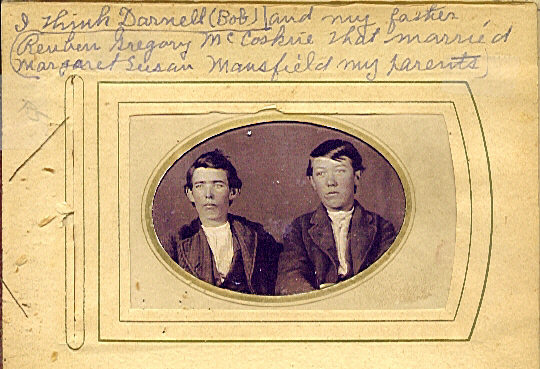 I think Darnell (Bob) and my father
(Reuben Gregory McCoskrie that married
Margaret Susan Mansfield my parents)